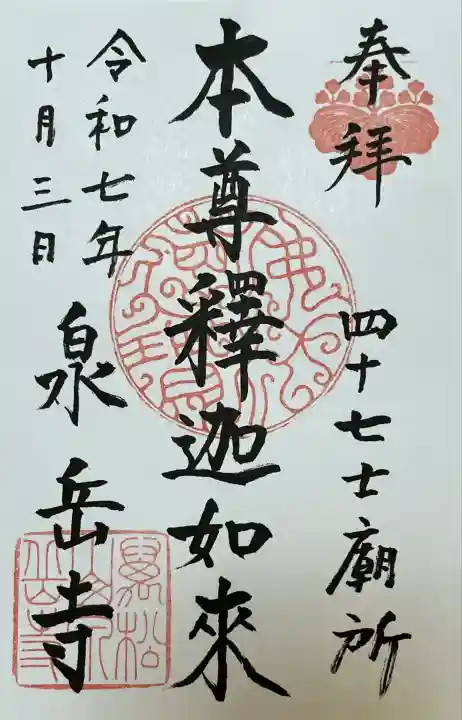 奉拝
四十七士廟所
本尊釋迦如來
令和七年
十月三日
泉岳寺